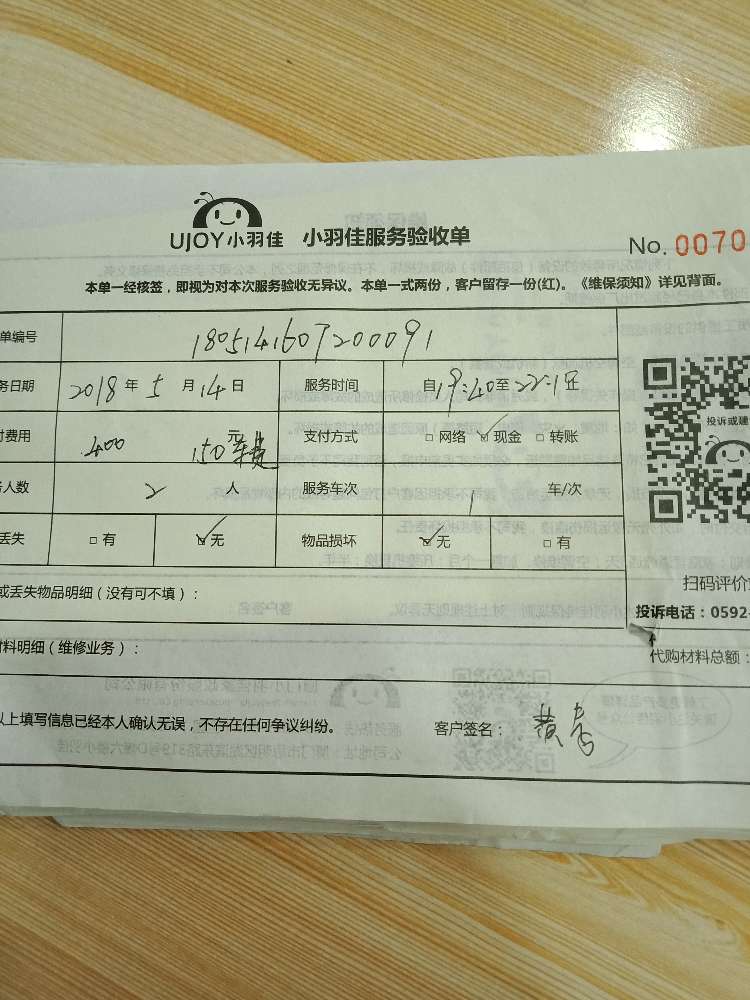 UJOY小羽佳 小羽佳服务验收单
No. 0070
本单一经核签，即视为对本次服务验收无异议。本单一式两份，客户留存一份(红)。《维保须知》详见背面。
单编号 1805141607200091
务日期 2018年5月14日 服务时间 自19:20至22:1
付费用 400 150元 车费 支付方式 □网络 ☑现金 □转账
投诉或建
务人数 2人 服务车次 1 车/次
丢失 □有 ☑无 物品损坏 ☑无 □有
扫码评价
或丢失物品明细（没有可不填）：
投诉电话：0592-
材料明细（维修业务）：
代购材料总额：
以上填写信息已经本人确认无误，不存在任何争议纠纷。 客户签名：黄